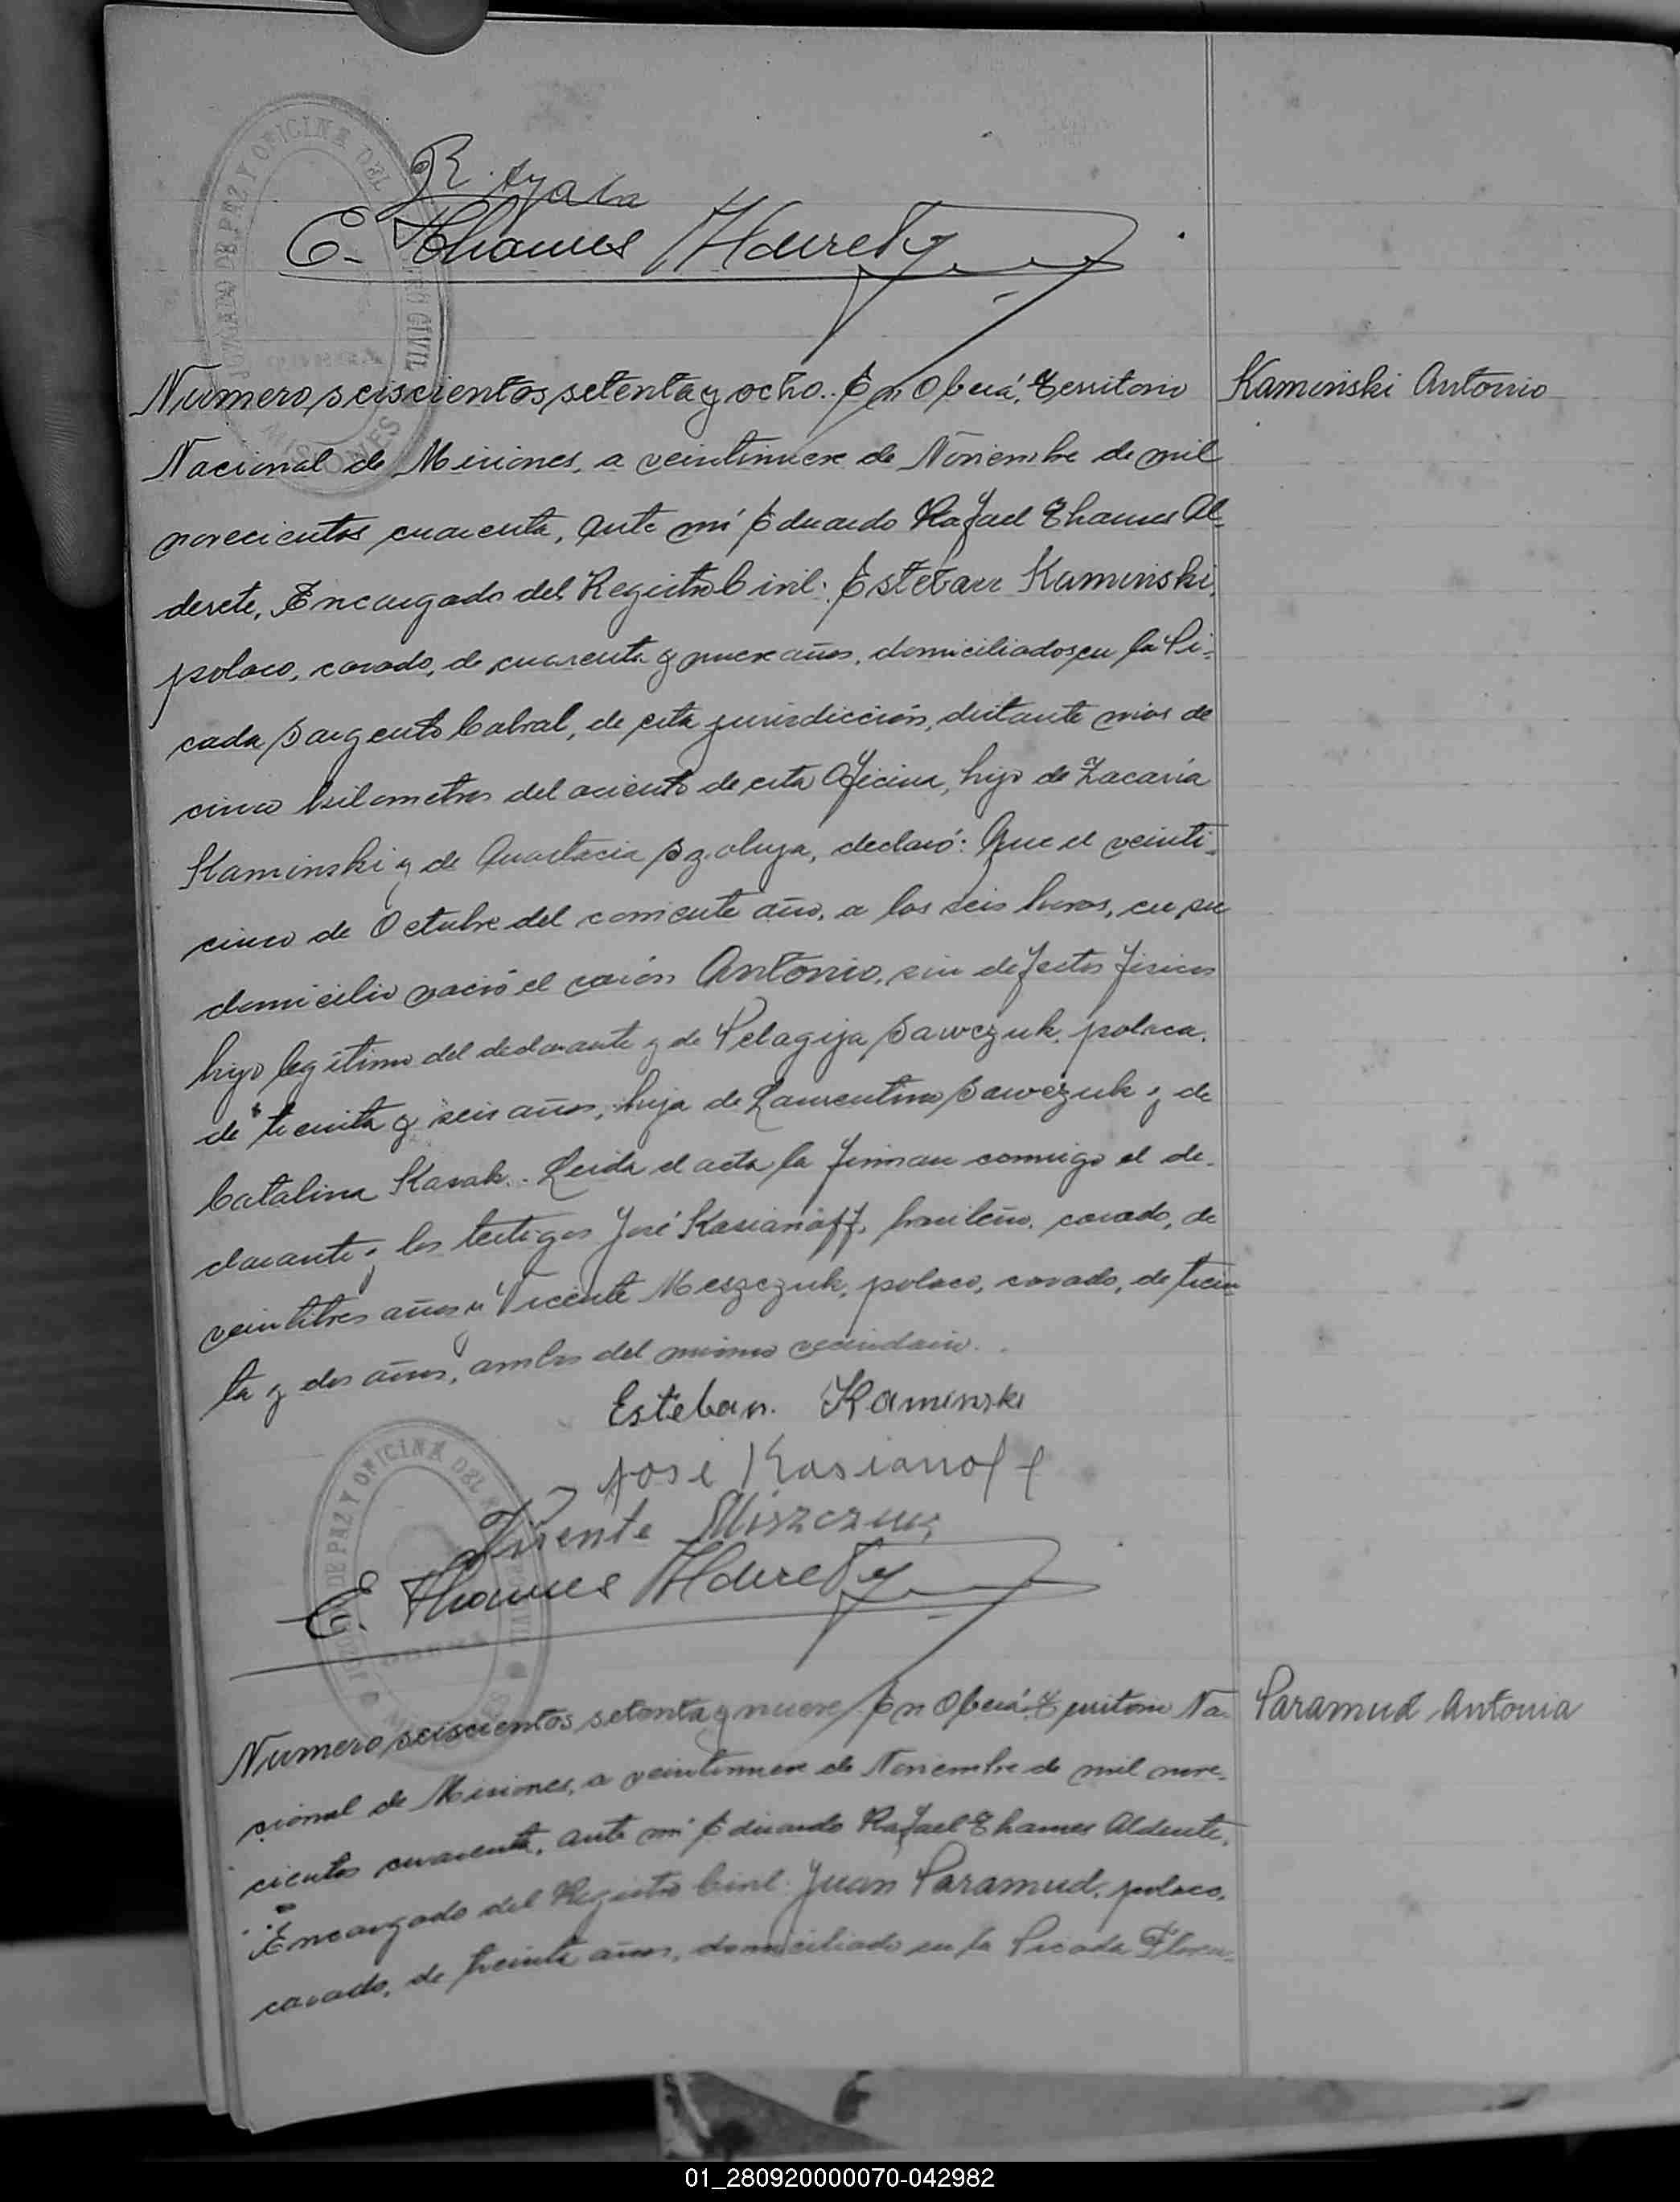 R. Ayala
E. Thames Alderete
JUZGADO DE PAZ Y OFICINA DEL REGISTRO CIVIL
MISIONES
Numero seiscientos setenta y ocho.. En Oberá, Territorio
Kaminski Antonio
Nacional de Misiones, a veintinueve de Noviembre de mil
novecientos cuarenta, ante mí Eduardo Rafael Thames Al-
derete, Encargado del Registro Civil: Esteban Kaminski,
polaco, casado, de cuarenta y nueve años, domiciliados en la Pi-
cada Sargento Cabral, de esta jurisdicción, distante mas de
cinco kilometros del aciento de esta Oficina, hijo de Zacaría
Kaminski y de Anastacia Szoluja, declaró: Que el veinti-
cinco de Octubre del corriente año, a las seis horas, en su
domicilio nació el varón Antonio, sin defectos fisicos
hijo legítimo del declarante y de Pelagija Sawczuk, polaca,
de treinta y seis años, hija de Laurentino Sawczuk y de
Catalina Kasak.. Leida el acta la firman conmigo el de-
clarante y los testigos José Kasianoff, brasileño, casado, de
veintitres años y Vicente Meszczuk, polaco, casado, de trein-
ta y dos años, ambos del mismo vecindario.
Esteban. Kaminski
José Kasianoff
Visente Miszczuk
E. Thames Alderete
DE PAZ Y OFICINA DEL
Numero seiscientos setenta y nueve. En Oberá, Territorio Na-
Paramud Antonia
cional de Misiones, a veintinueve de Noviembre de mil nove-
cientos cuarenta, ante mí Eduardo Rafael Thames Alderete,
Encargado del Registro Civil: Juan Paramud, polaco,
casado, de treinta años, domiciliado en la Picada
01_280920000070-042982